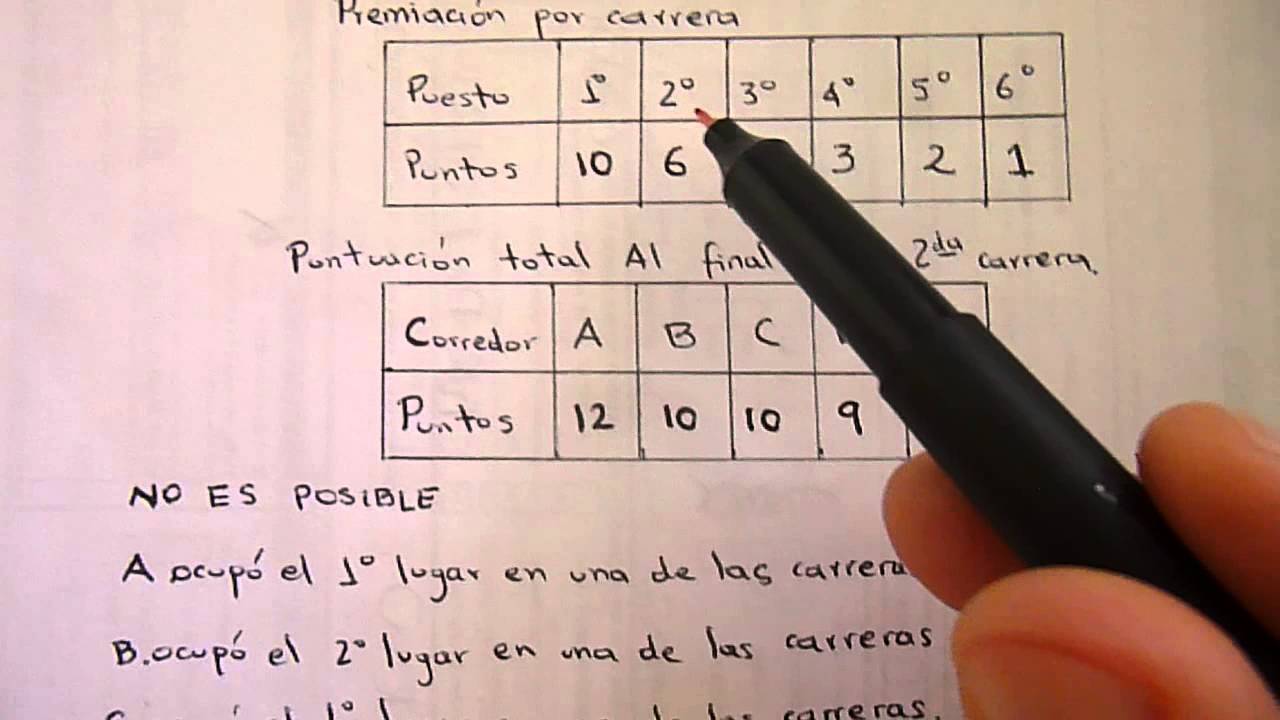 Premiación por carrera
Puesto 1º 2º 3º 4º 5º 6º
Puntos 10 6 3 2 1
Puntuación total Al final 2da carrera.
Corredor A B C
Puntos 12 10 10 9
NO ES POSIBLE
A ocupó el 1º lugar en una de las
B. ocupó el 2º lugar en una de las carreras
1º las carreras.